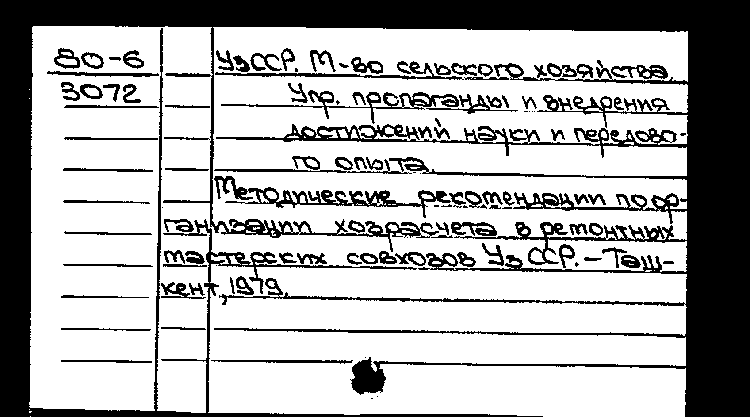 80-6 УзССР. М-во сельского хозяйства.
3072 Упр. пропаганды и внедрения
достижений науки и передово-
го опыта.
Методические рекомендации по ор-
ганизации хозрасчета в ремонтных
мастерских совхозов УзССР. – Таш-
кент, 1979.